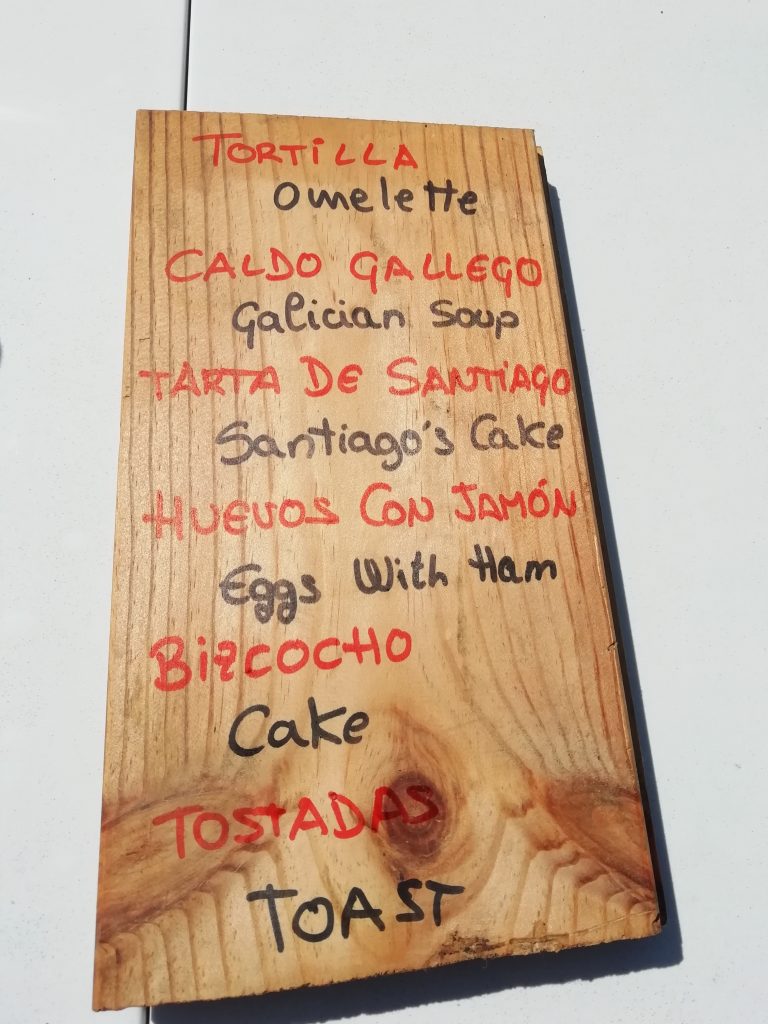 TORTiLLA
Omelette
CALDO GALLEGO
Galician Soup
TARTA DE SANTiAGO
Santiago's Cake
HUEVOS CON JAMÓN
Eggs With Ham
BiZCOCHO
Cake
TOSTADAS
TOAST